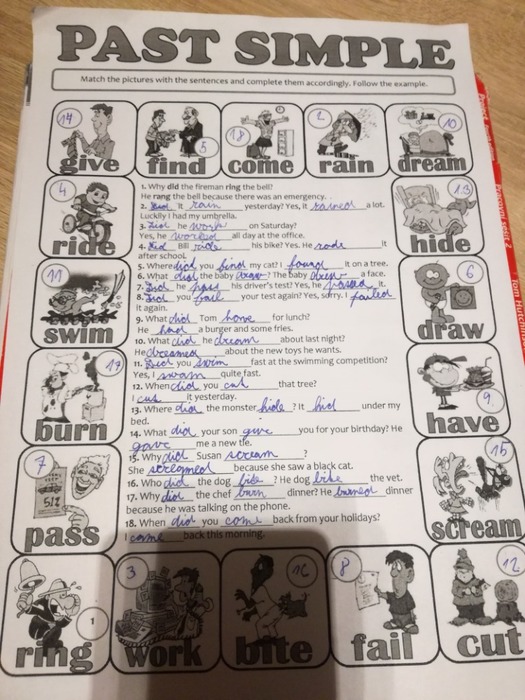 PAST SIMPLE
Match the pictures with the sentences and complete them accordingly. Follow the example.
14 give
5 find
18 come
2 rain
10 dream
4 ride
13 hide
11 swim
6 draw
17 burn
9 have
7 pass
15 scream
1 ring
3 work
16 bite
8 fail
12 cut
1. Why did the fireman ring the bell?
He rang the bell because there was an emergency.
2. Did it rain yesterday? Yes, it rained a lot.
Luckily I had my umbrella.
3. Did he work on Saturday?
Yes, he worked all day at the office.
4. Did Bill ride his bike? Yes. He rode it
after school.
5. Where did you find my cat? I found it on a tree.
6. What did the baby draw? The baby drew a face.
7. Did he pass his driver's test? Yes, he passed it.
8. Did you fail your test again? Yes, sorry. I failed
it again.
9. What did Tom have for lunch?
He had a burger and some fries.
10. What did he dream about last night?
He dreamed about the new toys he wants.
11. Did you swim fast at the swimming competition?
Yes, I swam quite fast.
12. When did you cut that tree?
I cut it yesterday.
13. Where did the monster hide? It hid under my
bed.
14. What did your son give you for your birthday? He
gave me a new tie.
15. Why did Susan scream?
She screamed because she saw a black cat.
16. Who did the dog bite? He dog bite the vet.
17. Why did the chef burn dinner? He burned dinner
because he was talking on the phone.
18. When did you come back from your holidays?
I came back this morning.
Tom Hutchinson